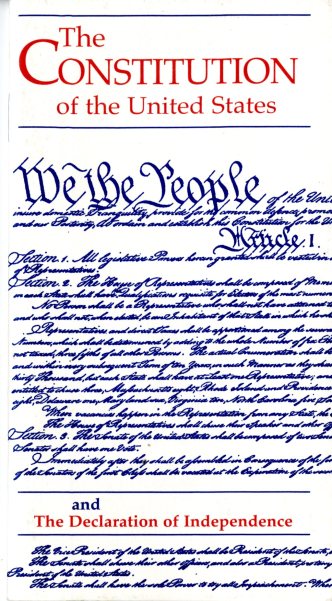 The
CONSTITUTION
of the United States
We the People of the Unit
insure domestic Tranquility, provide for the common defence, promo
and our Posterity, do ordain and establish this Constitution for the U
Article I.
Section. 1. All legislative Powers herein granted shall be vested in a
of Representatives.
Section. 2. The House of Representatives shall be composed of Mem
in each State shall have Qualifications requisite for Electors of the most num
No Person shall be a Representative who shall not have attained
and who shall not, when elected, be an Inhabitant of that State in which he sha
Representatives and direct Taxes shall be apportioned among the several
Numbers, which shall be determined by adding to the whole Number of free
not taxed, three fifths of all other Persons. The actual Enumeration shall be
and within every subsequent Term of ten Years, in such Manner as they
thirty Thousand, but each State shall have at Least one Representative; and
entitled to chuse three, Massachusetts eight, Rhode Island and Providence
eight, Delaware one, Maryland six, Virginia ten, North Carolina five,
When vacancies happen in the Representation from any State, the
The House of Representatives shall chuse their Speaker and other
Section. 3. The Senate of the United States shall be composed of two
Senator shall have one Vote.
Immediately after they shall be assembled in Consequence of the
of the Senators of the first Class shall be vacated at the Expiration of the
and
The Declaration of Independence
The Vice President of the United States shall be President of the Senate,
The Senate shall chuse their other Officers, and also a President pro
President of the United States.
The Senate shall have the sole Power to try all Impeachments.